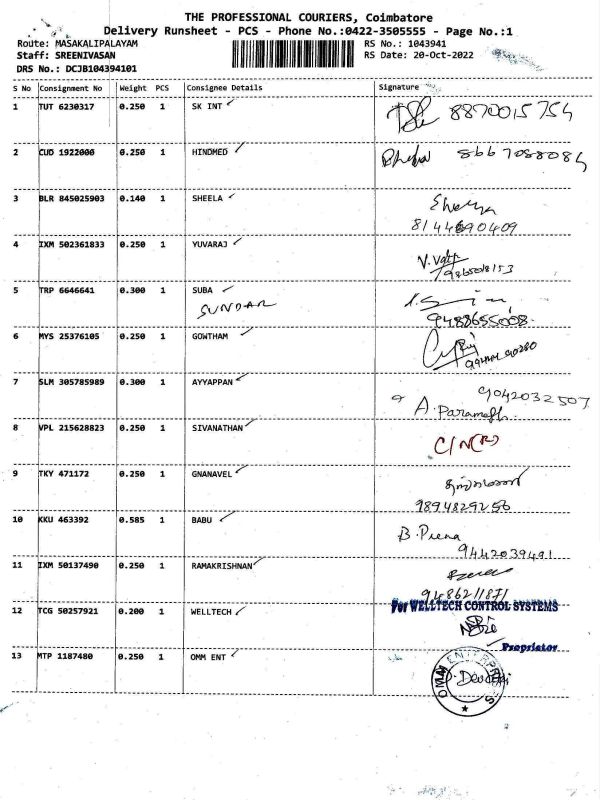 THE PROFESSIONAL COURIERS, Coimbatore
Delivery Runsheet - PCS - Phone No.:0422-3505555 - Page No.:1
Route: MASAKALIPALAYAM
RS No.: 1043941
Staff: SREENIVASAN
RS Date: 20-Oct-2022
DRS No.: DCJB104394101
S No Consignment No Weight PCS Consignee Details Signature
1 TUT 6230317 0.250 1 SK INT 8870015754
2 CUD 1922000 0.250 1 HINDMED 8667088084
3 BLR 845025903 0.140 1 SHEELA Sheeja
8144690409
4 IXM 502361833 0.250 1 YUVARAJ
5 TRP 6646641 0.300 1 SUBA
SUNDAR
9488655008
6 MYS 25376105 0.250 1 GOWTHAM
7 SLM 305785989 0.300 1 AYYAPPAN 9042032507
A.
8 VPL 215628823 0.250 1 SIVANATHAN C/N(R)
9 TKY 471172 0.250 1 GNANAVEL
9894829256
10 KKU 463392 0.585 1 BABU B. Prena
9442039491
11 IXM 50137490 0.250 1 RAMAKRISHNAN
9486211871
12 TCG 50257921 0.200 1 WELLTECH For WELLTECH CONTROL SYSTEMS
Proprietor
13 MTP 1187480 0.250 1 OMM ENT OMM ENTERPRISES